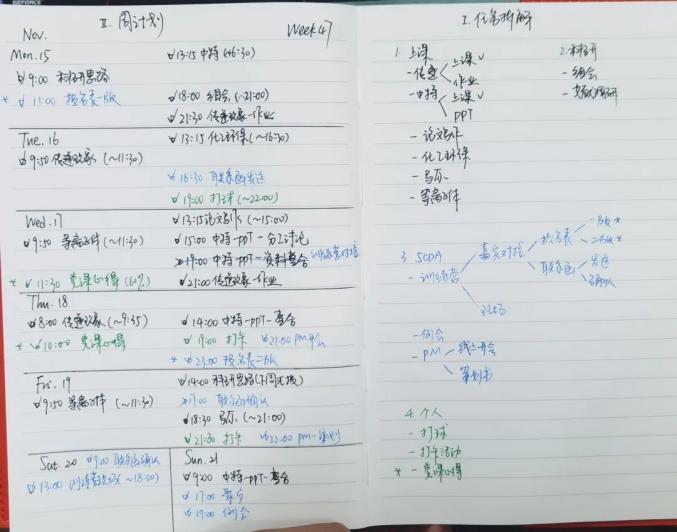 Nov.
II. 周计划
Week 47
Mon. 15
13:15 中特 (~16:30)
9:00 科研思路
* 11:00 报名表一版
18:00 组会 (~21:00)
21:30 传递 - 作业
Tue. 16
13:15 化工环保 (~16:30)
9:50 传递 (~11:30)
16:30 联系函发送
19:00 打球 (~22:00)
Wed. 17
13:15 论文写作 (~15:00)
9:50 等离子体 (~11:30)
15:00 中特-PPT-分工讨论
19:00 中特-PPT-资料整合
训练营对接
* 11:30 党课心得 (60%)
21:00 传递 - 作业
Thu. 18
8:00 传递 (~9:35)
14:00 中特-PPT-整合
* 10:00 党课心得
19:00 打卡
21:00 PM 开会
* 23:00 报名表二版
Fri. 19
14:00 科研思路
9:50 等离子体 (~11:30)
联系函确认
18:30 马原 (~21:00)
21:30 打卡
22:00 PM-策划
Sat. 20
9:00 联系函确认
13:00 训练营 (~18:00)
Sun. 21
9:00 中特-PPT-整合
17:00 聚会
19:00 例会
I. 任务拆解
1. 上课
- 传递
上课 ✓
作业
- 中特
上课 ✓
PPT
- 论文写作
- 化工环保
- 马原
- 等离子体
2. 科研
- 组会
- 文献调研
3. SODA
- 训练营
嘉宾对接
报名表
一版 *
二版 *
联系函
发送
确认
现场
- 例会
- PM
线上开会
策划书
4. 个人
- 打球
- 打卡活动
* - 党课心得